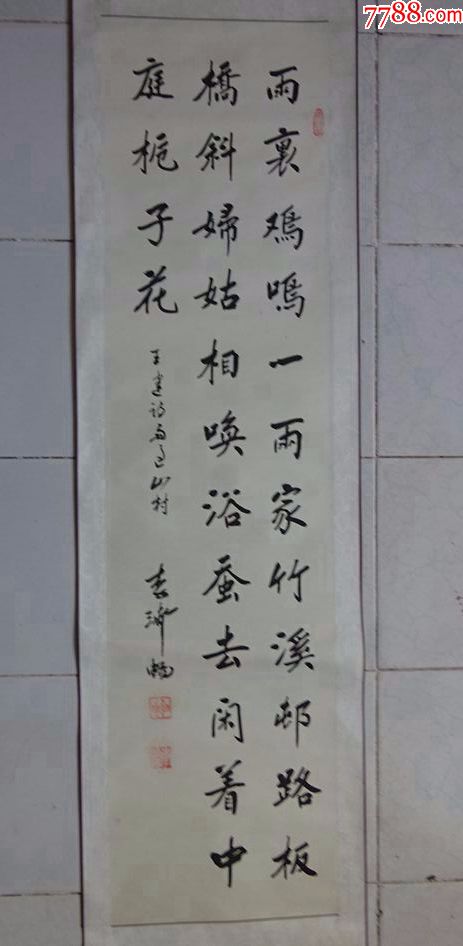 7788.com
雨裏鸡鳴一兩家竹溪邨路板
橋斜婦姑相唤浴蚕去闲着中
庭栀子花
王建诗雨过山村